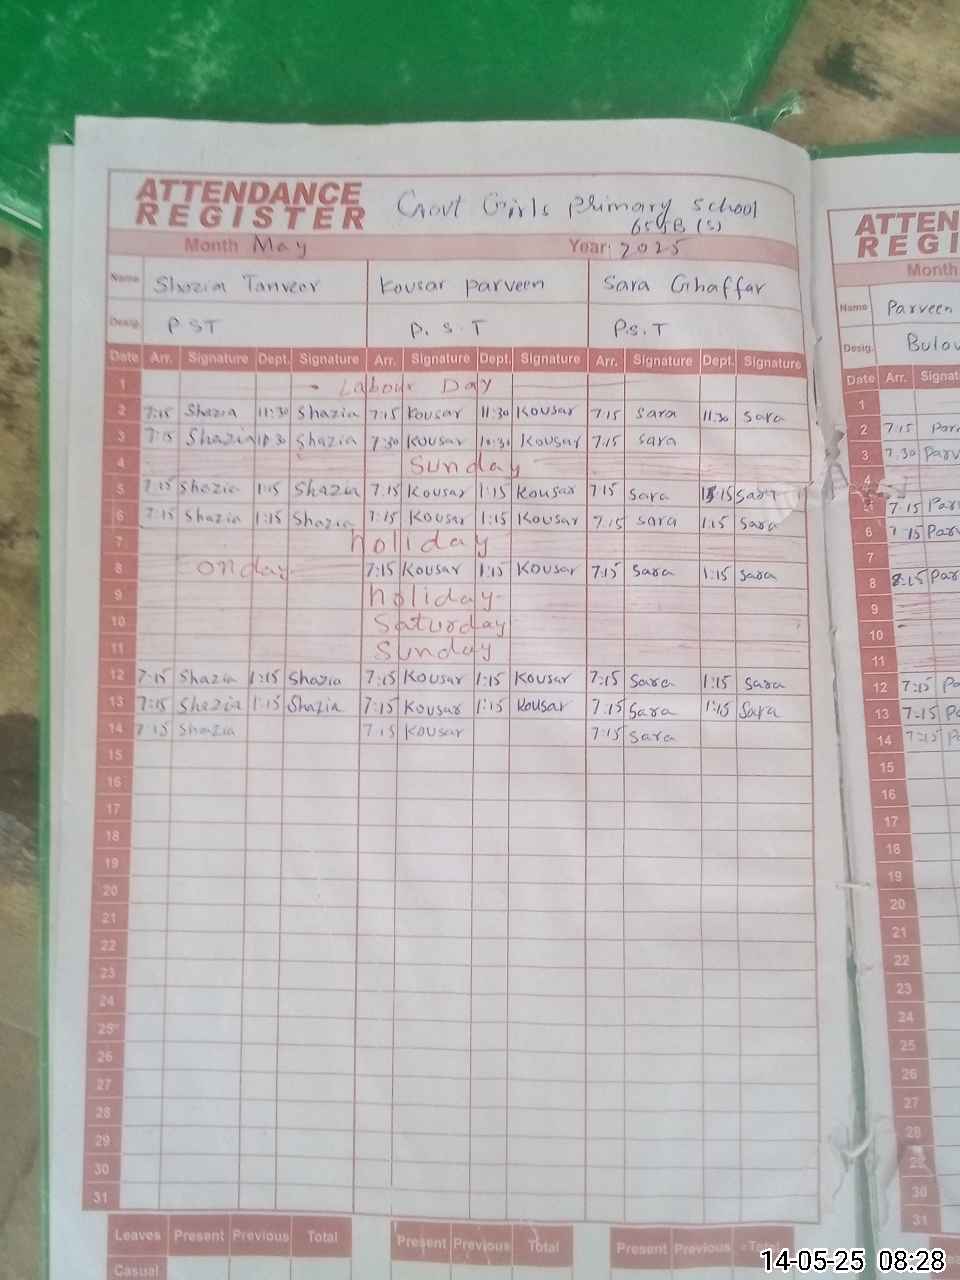 ATTENDANCE REGISTER Govt Girls Primary School
655GB (S)
Month May Year: 2025
Name Shazia Tanveer Kousar Parveen Sara Ghaffar
Desig. P ST P. S. T P.S.T
Date Arr. Signature Dept. Signature Arr. Signature Dept. Signature Arr. Signature Dept. Signature
1 Labour Day
2 7:15 Shazia 11:30 Shazia 7:15 Kousar 11:30 Kousar 7:15 Sara 11:30 Sara
3 7:15 Shazia 10:30 Shazia 7:30 Kousar 10:30 Kousar 7:15 Sara
4 Sunday
5 7:15 Shazia 1:15 Shazia 7:15 Kousar 1:15 Kousar 7:15 Sara 1:15 Sara
6 7:15 Shazia 1:15 Shazia 7:15 Kousar 1:15 Kousar 7:15 Sara 1:15 Sara
7 holiday
8 onday 7:15 Kousar 1:15 Kousar 7:15 Sara 1:15 Sara
9 holiday
10 Saturday
11 Sunday
12 7:15 Shazia 1:15 Shazia 7:15 Kousar 1:15 Kousar 7:15 Sara 1:15 Sara
13 7:15 Shazia 1:15 Shazia 7:15 Kousar 1:15 Kousar 7:15 Sara 1:15 Sara
14 7:15 Shazia 7:15 Kousar 7:15 Sara
15
16
17
18
19
20
21
22
23
24
25
26
27
28
29
30
31
Leaves Present Previous Total Present Previous Total Present Previous Total
Casual
ATTEN
REGI
Month
Name Parveen
Desig.
Date Arr. Signat
1
2 7:15 Par
3 7:30 Parv
4
5 7:15 Par
6 7:15 Parv
7
8 8:15 Par
9
10
11
12 7:15 Pa
13 7:15 Po
14 7:15 Po
15
16
17
18
19
20
21
22
23
24
25
26
27
28
29
30
31
14-05-25 08:28